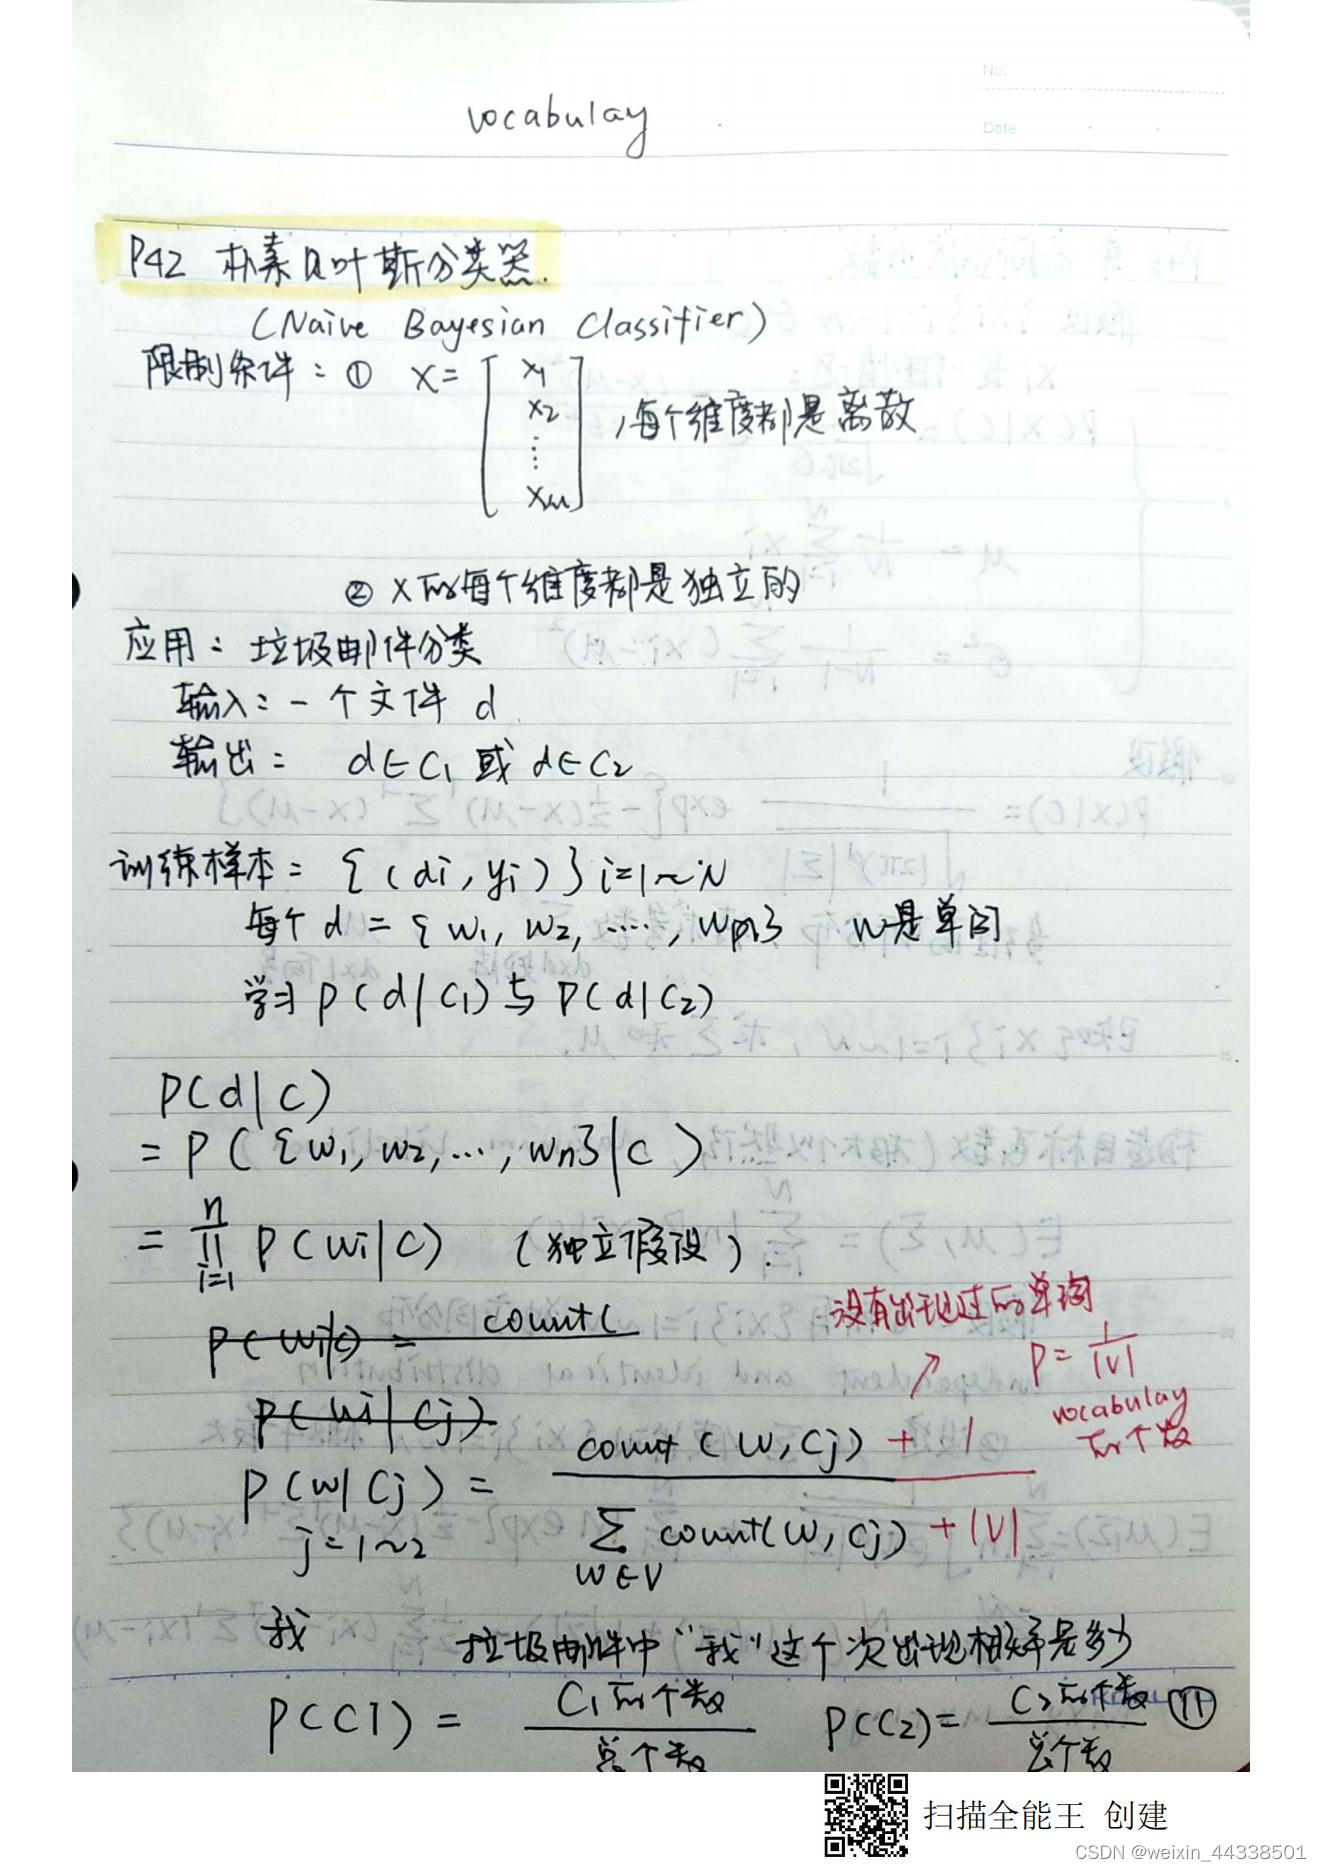 No.
vocabulay
Date
P42 朴素贝叶斯分类器.
(Naive Bayesian Classifier)
限制条件: ① X = [ x1 x2 ⋮ xm ] ,每个维度都是离散
② X的每个维度都是独立的
应用: 垃圾邮件分类
输入: 一个文件 d
输出: d∈C1 或 d∈C2
训练样本 = {(di, yi)} i=1~N
每个 d = {w1, w2, ...., wn} w是单词
学习 P(d|C1) 与 P(d|C2)
P(d|C)
= P({w1, w2, ..., wn}|C)
= ∏ i=1 n P(wi|C) (独立假设).
P(wi|c) = count(
没有出现过的单词
P = 1/|V|
P(wi|Cj)
vocabulay
的个数
P(w|Cj) = count(w, Cj) + 1 / ∑ w∈V count(w, Cj) + |V|
j=1~2
我 垃圾邮件中“我”这个次出现概率是多少
P(C1) = C1的个数 / 总个数 P(C2) = C2的个数 / 总个数 ⑪
扫描全能王 创建
CSDN @weixin_44338501